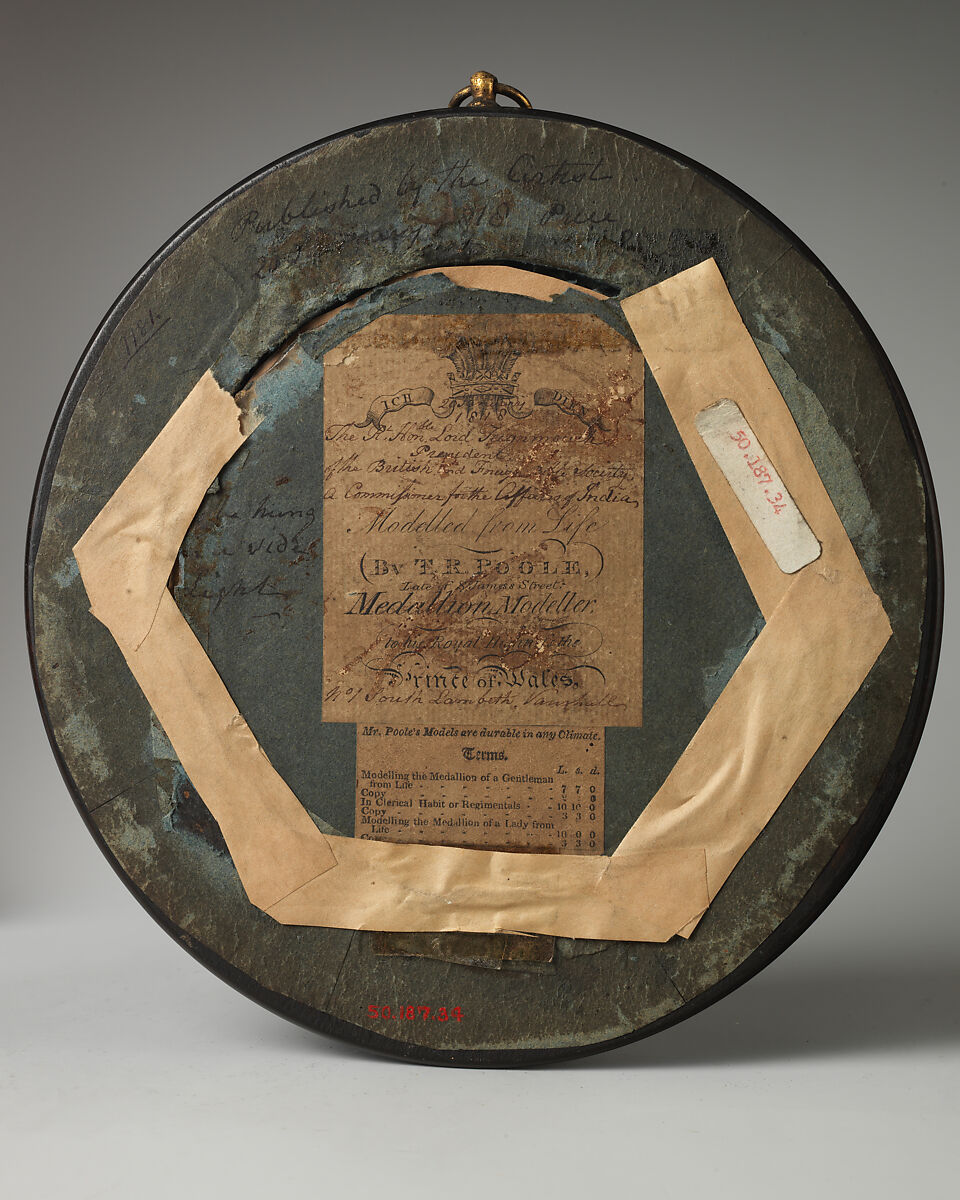 Published by the Artist
1818 Price
1781.
ICH DIEN
The Rt. Honble Lord Teignmouth
President
of the British and Foreign Bible Society
A Commissioner for the Affairs of India
Modelled from Life
(By T. R. POOLE,)
Late of St James's Street.
Medallion Modeller,
to his Royal Highness the
Prince of Wales,
No 1 South Lambeth, Vauxhall
hung
side
light
50.187.34
Mr. Poole's Models are durable in any Climate.
Terms.
L. s. d.
Modelling the Medallion of a Gentleman
from Life - - 7 7 0
Copy
In Clerical Habit or Regimentals - - 10 10 0
Copy - - 3 3 0
Modelling the Medallion of a Lady from
Life - - 10 0 0
Copy - - 3 3 0
50.187.34